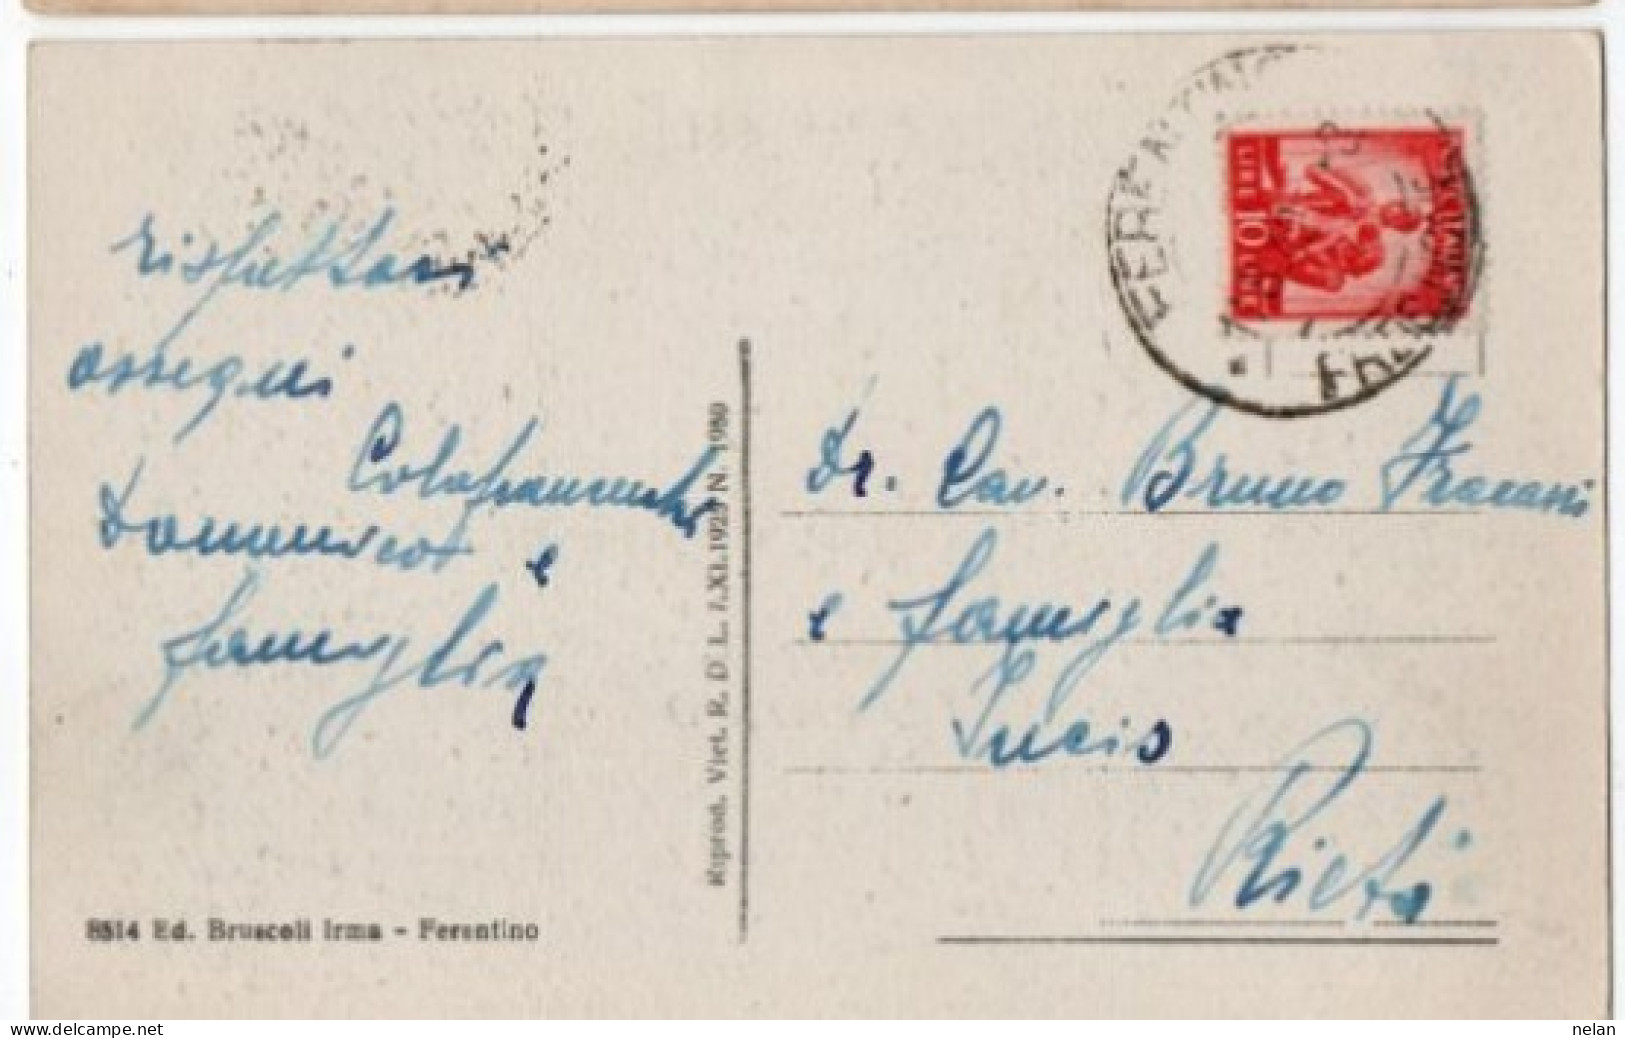 rispettosi
ossequi
Colafranceschi
Domenico e
famiglia
8514 Ed. Bruscoli Irma - Ferentino
Riprod. Viet. R. D L. 7.XI.1925 N. 1980
FERENTINO
LIRE 10 LIRE
Dr. Cav. Bruno Fracassi
e famiglia
Rieti
nelan
www.delcampe.net